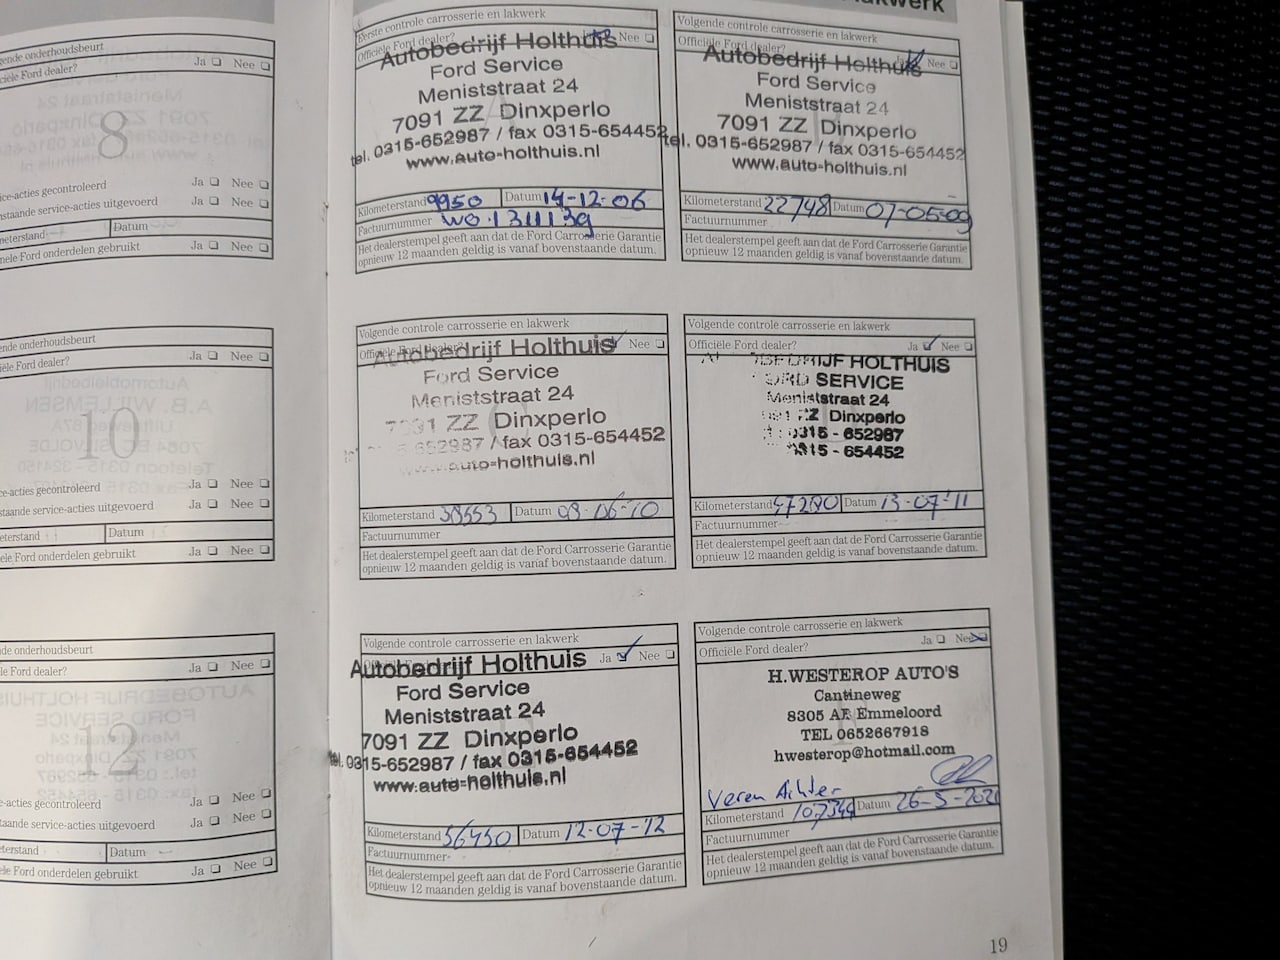 ende onderhoudsbeurt
ciële Ford dealer?
Ja Nee
8
ice-acties gecontroleerd
Ja Nee
staande service-acties uitgevoerd
Ja Nee
meterstand
Datum
nele Ford onderdelen gebruikt
Ja Nee
nde onderhoudsbeurt
ële Ford dealer?
Ja Nee
10
-acties gecontroleerd
Ja Nee
taande service-acties uitgevoerd
Ja Nee
eterstand
Datum
ele Ford onderdelen gebruikt
Ja Nee
de onderhoudsbeurt
le Ford dealer?
Ja Nee
12
-acties gecontroleerd
Ja Nee
aande service-acties uitgevoerd
Ja Nee
terstand
Datum
le Ford onderdelen gebruikt
Ja Nee
lakwerk
Eerste controle carrosserie en lakwerk
Officiële Ford dealer?
Nee
Autobedrijf Holthuis
Ford Service
Meniststraat 24
7091 ZZ Dinxperlo
tel. 0315-652987 / fax 0315-654452
www.auto-holthuis.nl
Kilometerstand 9950 Datum 14-12-06
Factuurnummer WO.131139
Het dealerstempel geeft aan dat de Ford Carrosserie Garantie
opnieuw 12 maanden geldig is vanaf bovenstaande datum.
Volgende controle carrosserie en lakwerk
Officiële Ford dealer?
Nee
Autobedrijf Holthuis
Ford Service
Meniststraat 24
7091 ZZ Dinxperlo
tel. 0315-652987 / fax 0315-654452
www.auto-holthuis.nl
Kilometerstand 22748 Datum 07-05-09
Factuurnummer
Het dealerstempel geeft aan dat de Ford Carrosserie Garantie
opnieuw 12 maanden geldig is vanaf bovenstaande datum.
Volgende controle carrosserie en lakwerk
Officiële Ford dealer?
Nee
Autobedrijf Holthuis
Ford Service
Meniststraat 24
ZZ Dinxperlo
652987 / fax 0315-654452
www.auto-holthuis.nl
Kilometerstand 38553 Datum 08-06-10
Factuurnummer
Het dealerstempel geeft aan dat de Ford Carrosserie Garantie
opnieuw 12 maanden geldig is vanaf bovenstaande datum.
Volgende controle carrosserie en lakwerk
Officiële Ford dealer?
Ja Nee
HOLTHUIS
SERVICE
Meniststraat 24
Dinxperlo
0315 - 652987
0315 - 654452
Kilometerstand 47280 Datum 13-07-11
Factuurnummer
Het dealerstempel geeft aan dat de Ford Carrosserie Garantie
opnieuw 12 maanden geldig is vanaf bovenstaande datum.
Volgende controle carrosserie en lakwerk
Ja Nee
Autobedrijf Holthuis
Ford Service
Meniststraat 24
7091 ZZ Dinxperlo
tel. 0315-652987 / fax 0315-654452
www.auto-holthuis.nl
Kilometerstand 56450 Datum 12-07-12
Factuurnummer
Het dealerstempel geeft aan dat de Ford Carrosserie Garantie
opnieuw 12 maanden geldig is vanaf bovenstaande datum.
Volgende controle carrosserie en lakwerk
Officiële Ford dealer?
Ja Nee
H.WESTEROP AUTO'S
Cantineweg
8305 AE Emmeloord
TEL 0652667918
hwesterop@hotmail.com
Veren Achter
Kilometerstand 107344 Datum 26-5-2021
Factuurnummer
Het dealerstempel geeft aan dat de Ford Carrosserie Garantie
opnieuw 12 maanden geldig is vanaf bovenstaande datum.
19